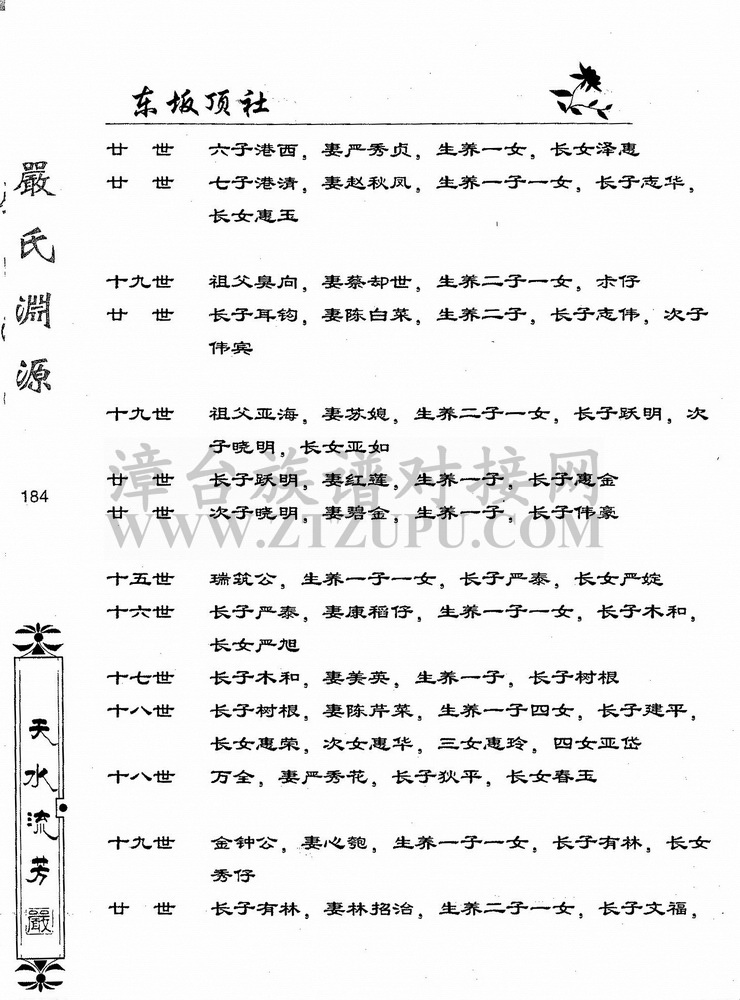 东坂顶社
廿 世 六子港西，妻严秀贞，生养一女，长女泽惠
廿 世 七子港清，妻赵秋凤，生养一子一女，长子志华，
长女惠玉
十九世 祖父臭向，妻蔡却世，生养二子一女，尗仔
廿 世 长子耳钧，妻陈白菜，生养二子，长子志伟，次子
伟宾
十九世 祖父亚海，妻苏媳，生养二子一女，长子跃明，次
子晓明，长女亚如
廿 世 长子跃明，妻红莲，生养一子，长子惠金
廿 世 次子晓明，妻碧金，生养一子，长子伟豪
十五世 瑞筑公，生养一子一女，长子严泰，长女严婝
十六世 长子严泰，妻康稻仔，生养一子一女，长子木和，
长女严旭
十七世 长子木和，妻美英，生养一子，长子树根
十八世 长子树根，妻陈芹菜，生养一子四女，长子建平，
长女惠荣，次女惠华，三女惠玲，四女亚岱
十八世 万全，妻严秀花，长子狄平，长女春玉
十九世 金钟公，妻心匏，生养一子一女，长子有林，长女
秀仔
廿 世 长子有林，妻林招治，生养二子一女，长子文福，
嚴氏淵源
184
天水流芳
嚴
漳台族谱对接网
WWW.ZTZUPU.COM